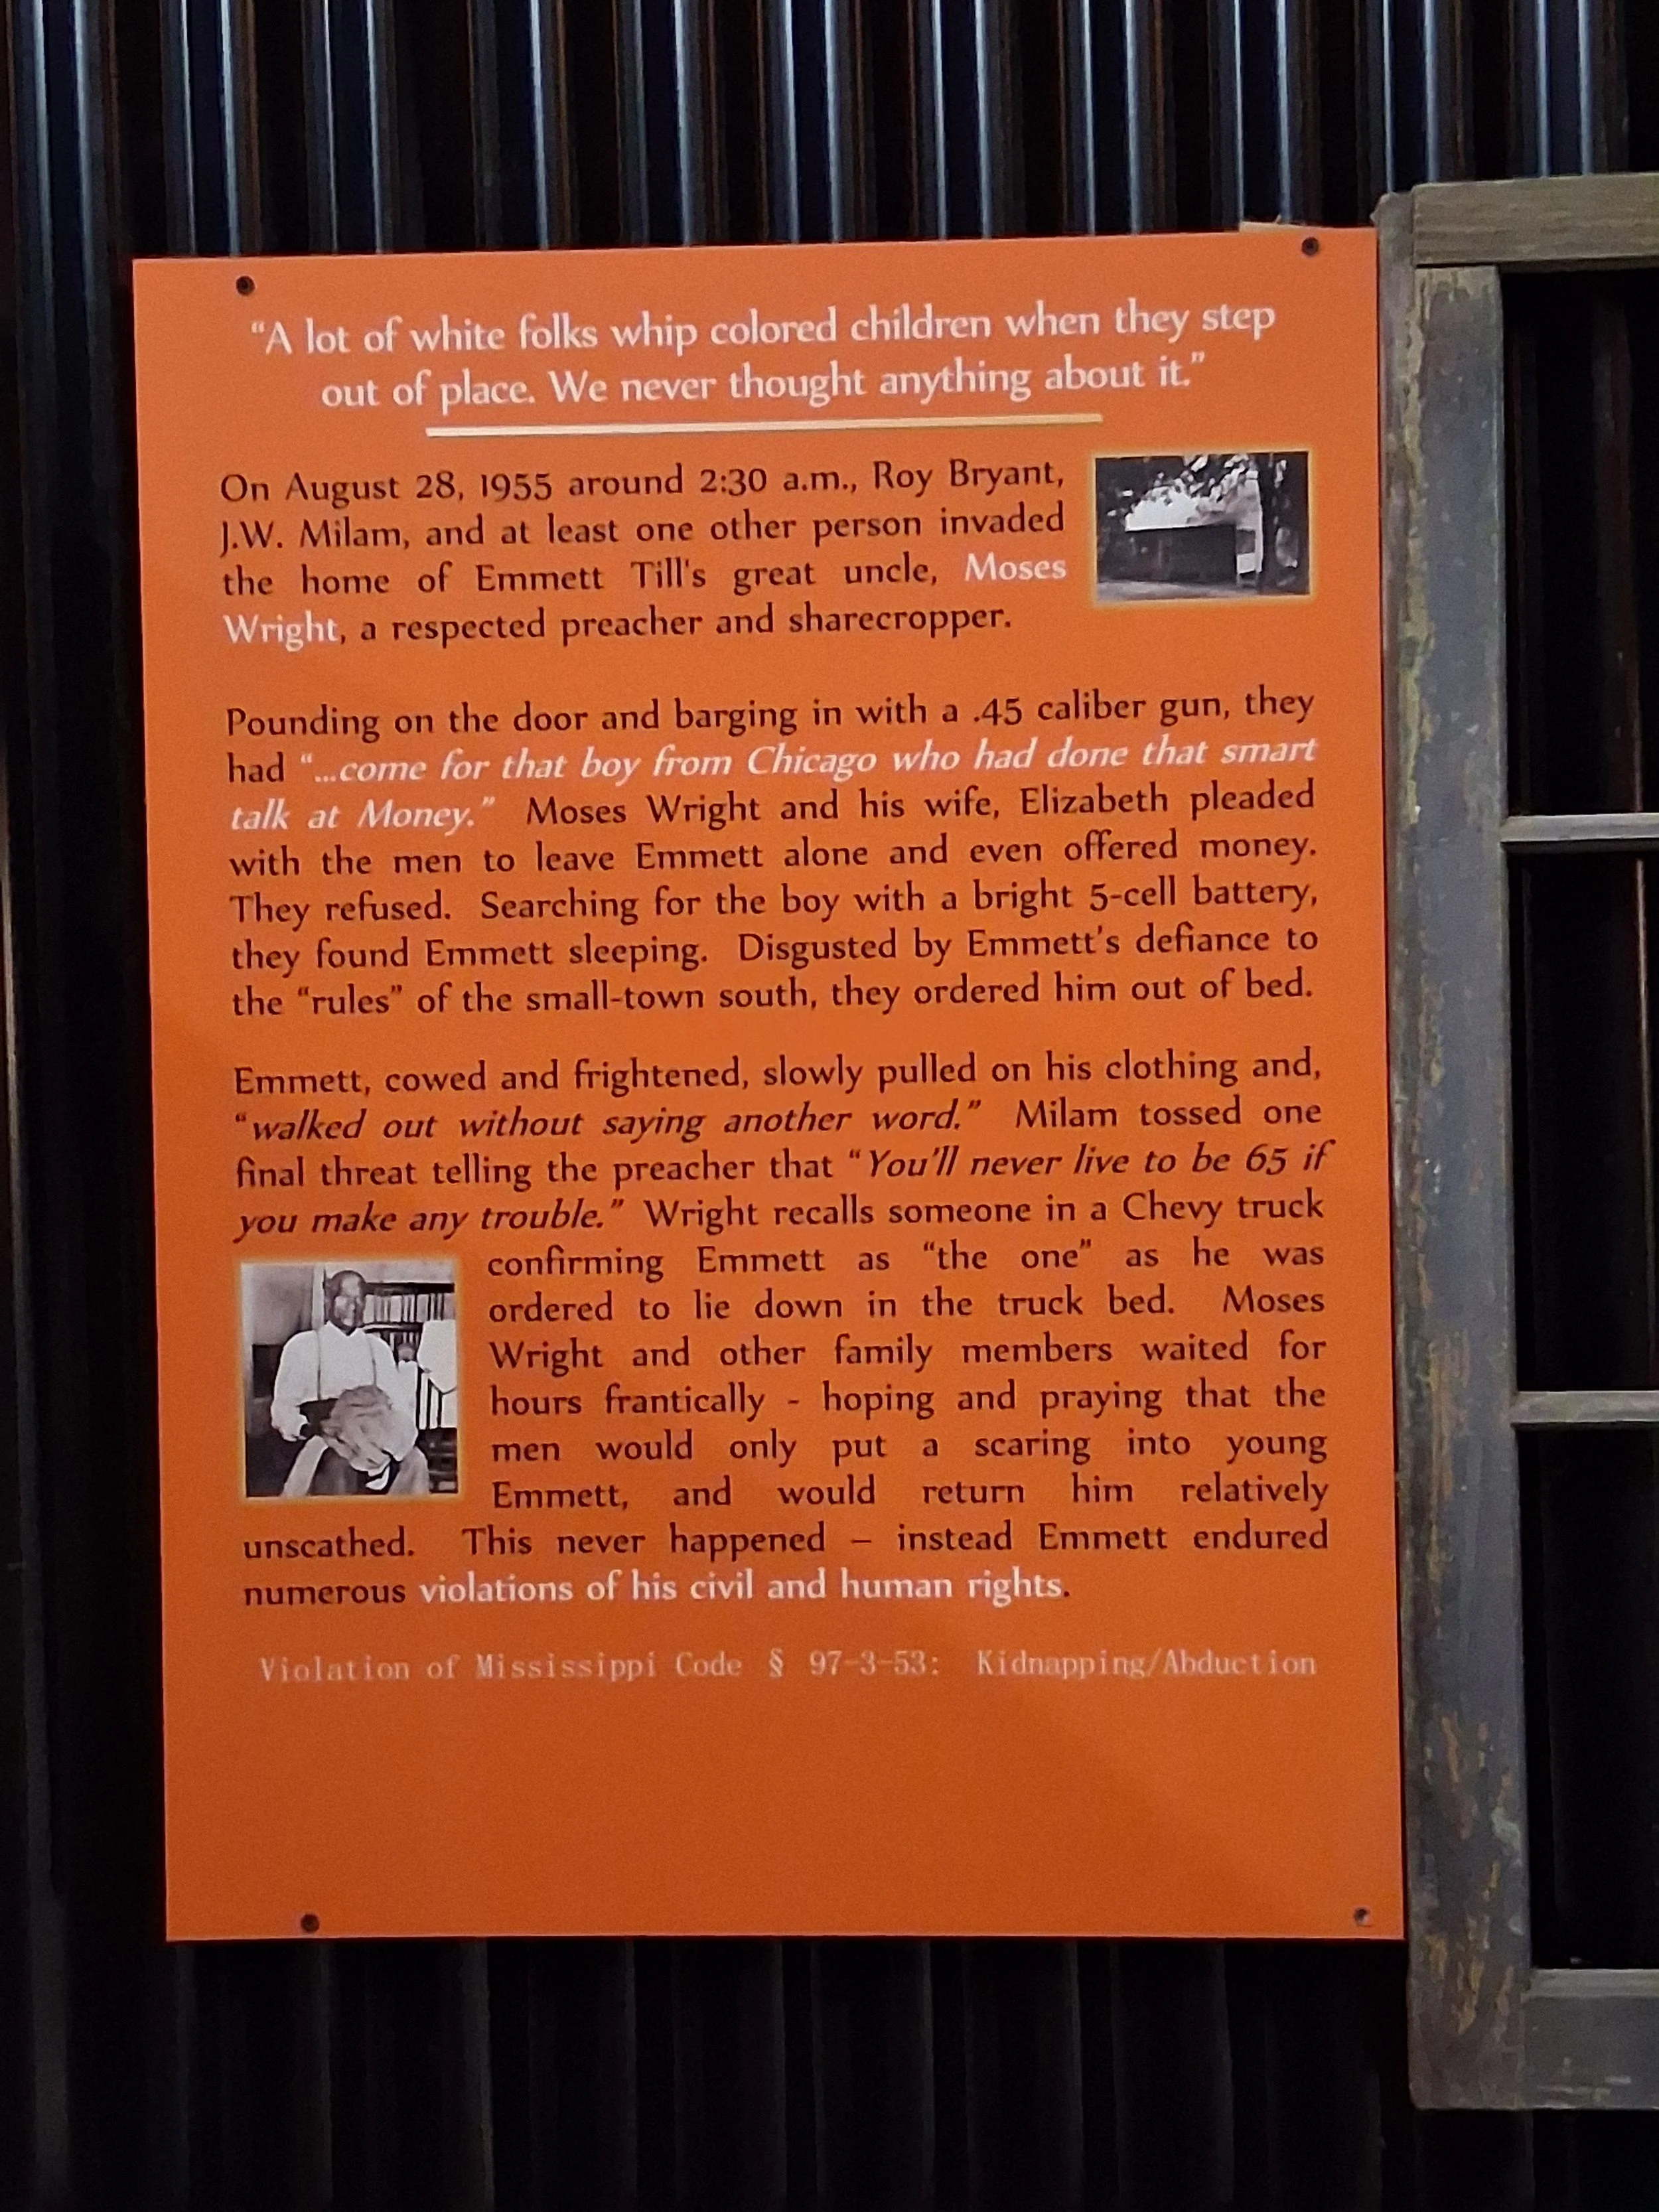 “A lot of white folks whip colored children when they step
out of place. We never thought anything about it.”
On August 28, 1955 around 2:30 a.m., Roy Bryant,
J.W. Milam, and at least one other person invaded
the home of Emmett Till's great uncle, Moses
Wright, a respected preacher and sharecropper.
Pounding on the door and barging in with a .45 caliber gun, they
had “...come for that boy from Chicago who had done that smart
talk at Money.” Moses Wright and his wife, Elizabeth pleaded
with the men to leave Emmett alone and even offered money.
They refused. Searching for the boy with a bright 5-cell battery,
they found Emmett sleeping. Disgusted by Emmett's defiance to
the “rules” of the small-town south, they ordered him out of bed.
Emmett, cowed and frightened, slowly pulled on his clothing and,
“walked out without saying another word.” Milam tossed one
final threat telling the preacher that “You'll never live to be 65 if
you make any trouble.” Wright recalls someone in a Chevy truck
confirming Emmett as “the one” as he was
ordered to lie down in the truck bed. Moses
Wright and other family members waited for
hours frantically - hoping and praying that the
men would only put a scaring into young
Emmett, and would return him relatively
unscathed. This never happened – instead Emmett endured
numerous violations of his civil and human rights.
Violation of Mississippi Code § 97-3-53: Kidnapping/Abduction